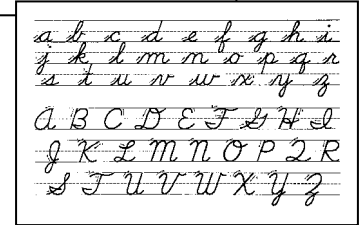 a b c d e f g h i
j k l m n o p q r
s t u v w x y z
A B C D E F G H I
J K L M N O P Q R
S T U V W X Y Z